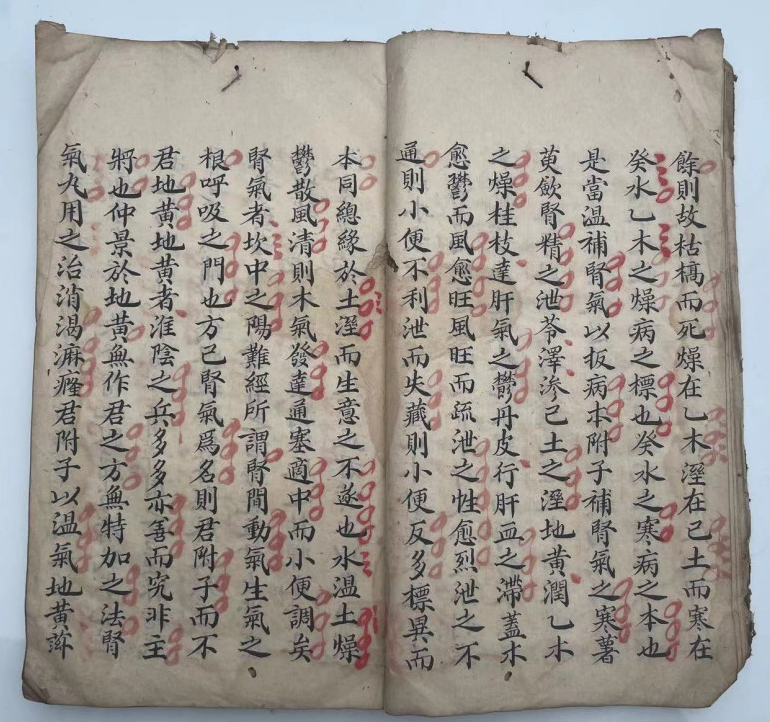 餘則故枯槁而死燥在乙木溼在己土而寒在
癸水乙木之燥病之標也癸水之寒病之本也
是當温補腎氣以扳病本附子補腎氣之寒薯
萸歛腎精之泄苓澤渗己土之溼地黃潤乙木
之燥桂枝達肝氣之鬱丹皮行肝血之滯蓋木
愈鬱而風愈旺風旺而疏泄之性愈烈泄之不
通則小便不利泄而失藏則小便反多標異而
本同總緣於土溼而生意之不遂也水温土燥
鬱散風清則木氣發達通塞適中而小便調矣
腎氣者坎中之陽難經所謂腎間動氣生氣之
根呼吸之門也方己腎氣爲名則君附子而不
君地黃地黃者淮陰之兵多多亦善而究非主
將也仲景於地黃無作君之方無特加之法腎
氣丸用之治消渴淋癃君附子以温氣地黃滋